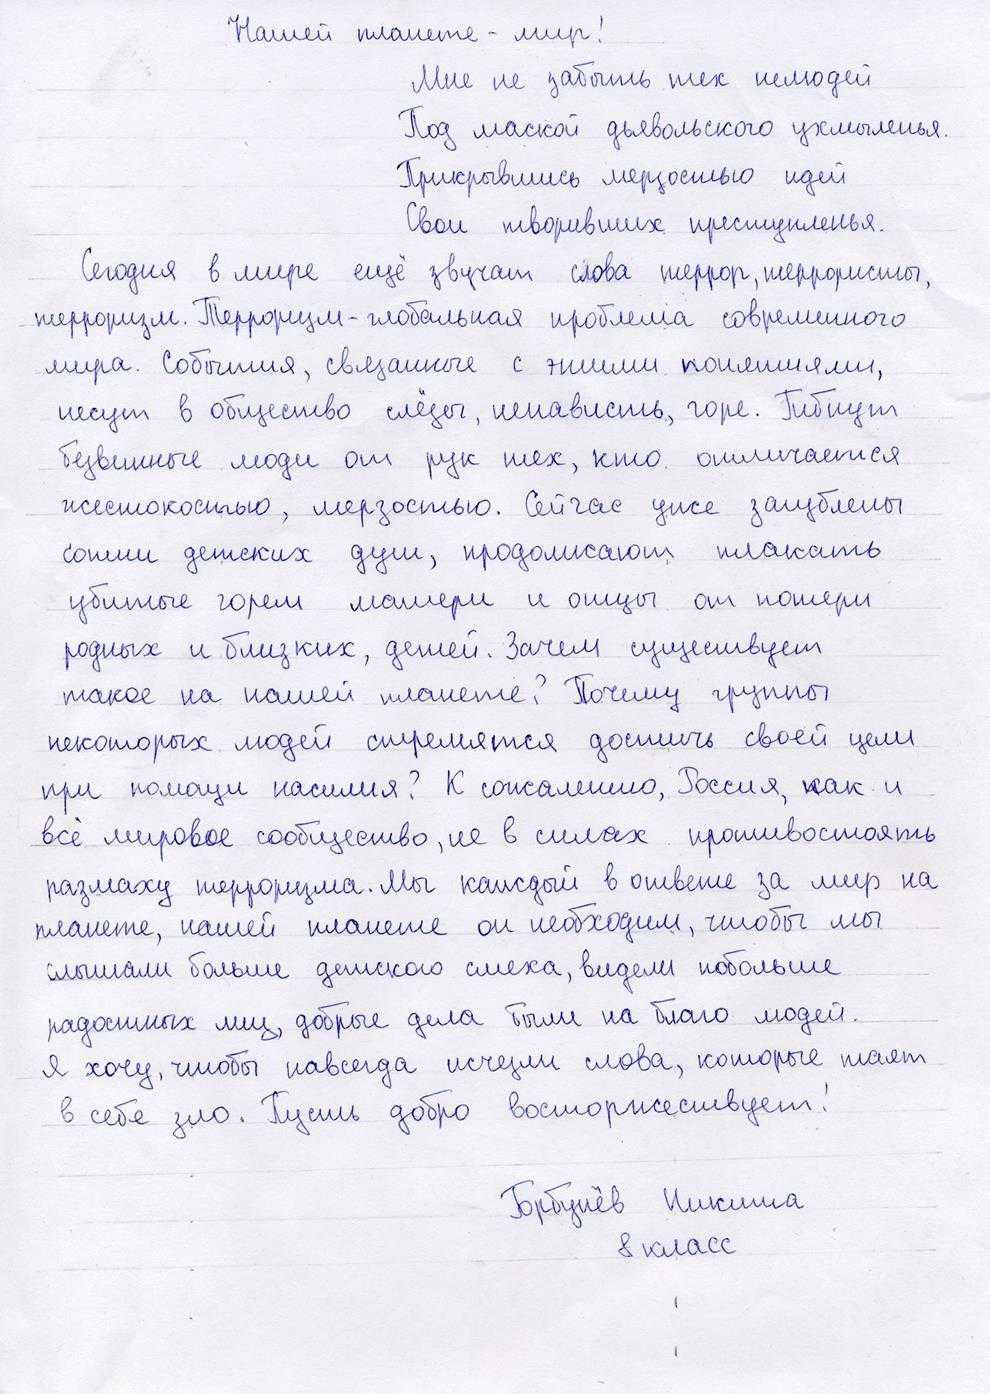 Нашей планете - мир!
Мне не забыть тех нелюдей
Под маской дьявольского ухмыленья.
Прикрывшись мерзостью идей
Свои творивших преступленья.
Сегодня в мире ещё звучат слова террор, террористы,
терроризм. Терроризм - глобальная проблема современного
мира. События, связанные с этими понятиями,
несут в общество слёзы, ненависть, горе. Гибнут
безвинные люди от рук тех, кто отличается
жестокостью, мерзостью. Сейчас уже загублены
сотни детских душ, продолжают плакать
убитые горем матери и отцы от потери
родных и близких, детей. Зачем существует
такое на нашей планете? Почему группы
некоторых людей стремятся достичь своей цели
при помощи насилия? К сожалению, Россия, как и
всё мировое сообщество, не в силах противостоять
размаху терроризма. Мы каждый в ответе за мир на
планете, нашей планете он необходим, чтобы мы
слышали больше детского смеха, видели побольше
радостных лиц, добрые дела были на благо людей.
Я хочу, чтобы навсегда исчезли слова, которые таят
в себе зло. Пусть добро восторжествует!
Горбунёв Никита
8 класс